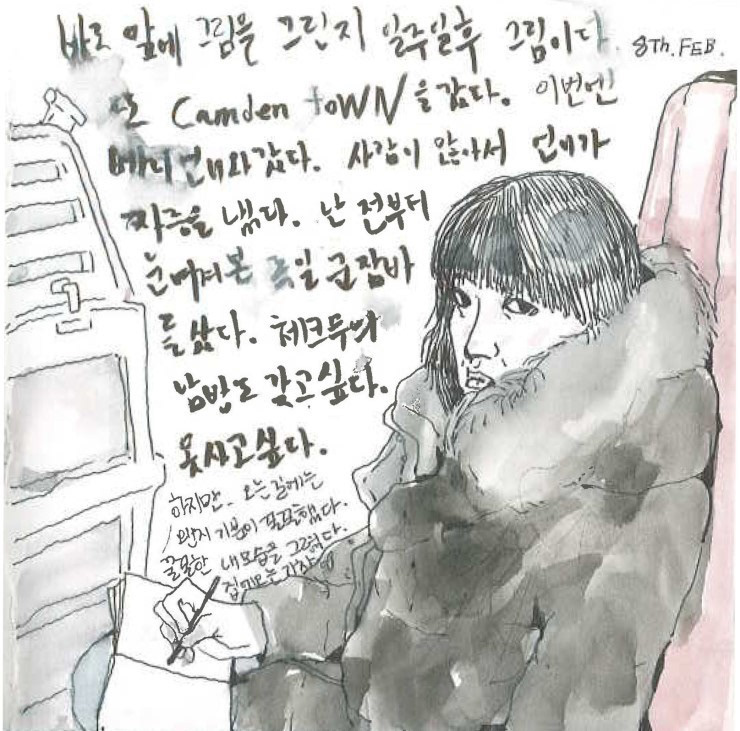 바로 앞에 그림을 그린지 일주일후 그림이다. 8Th.FEB.
또 Camden toWN을 갔다. 이번엔
베니언니와갔다. 사람이 많아서 언니가
짜증을 냈다. 난 전부터
눈여겨본 독일 군잠바
를 샀다. 체크무늬
남방도 갖고싶다.
옷사고싶다.
하지만, 오는길에는
왠지 기분이 꿀꿀했다.
꿀꿀한 내모습을 그렸다.
집에오는